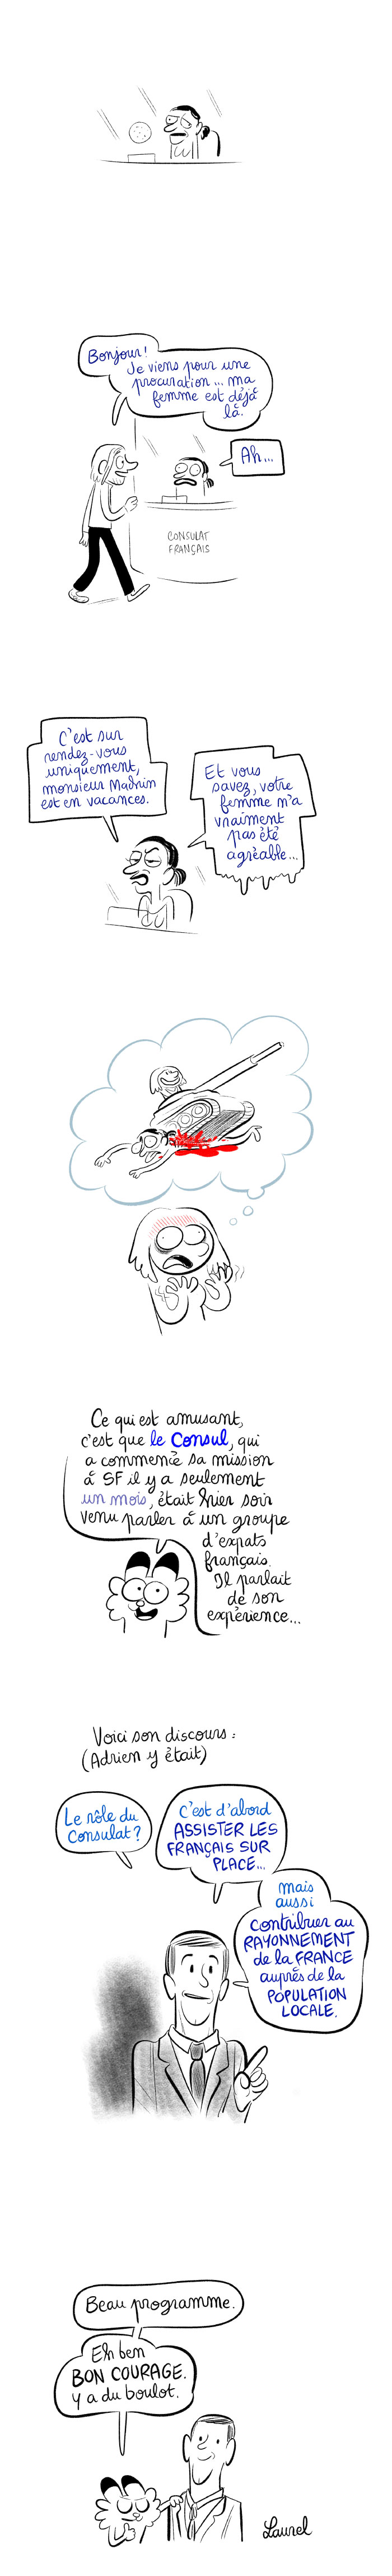 Bonjour!
Je viens pour une
procuration... ma
femme est déjà
là.
Ah...
CONSULAT
FRANÇAIS
C'est sur
rendez-vous
uniquement,
monsieur Madnin
est en vacances.
Et vous
savez, votre
femme m'a
vraiment
pas été
agréable...
Ce qui est amusant,
c'est que le Consul, qui
a commencé sa mission
à SF il y a seulement
un mois, était hier soir
venu parler à un groupe
d'expats
français.
Il parlait
de son
expérience...
Voici son discours :
(Adrien y était)
Le rôle du
Consulat?
C'est d'abord
ASSISTER LES
FRANÇAIS SUR
PLACE...
mais
aussi
contribuer au
RAYONNEMENT
de la FRANCE
auprès de la
POPULATION
LOCALE.
Beau programme.
Eh ben
BON COURAGE.
Y a du boulot.
Laurel